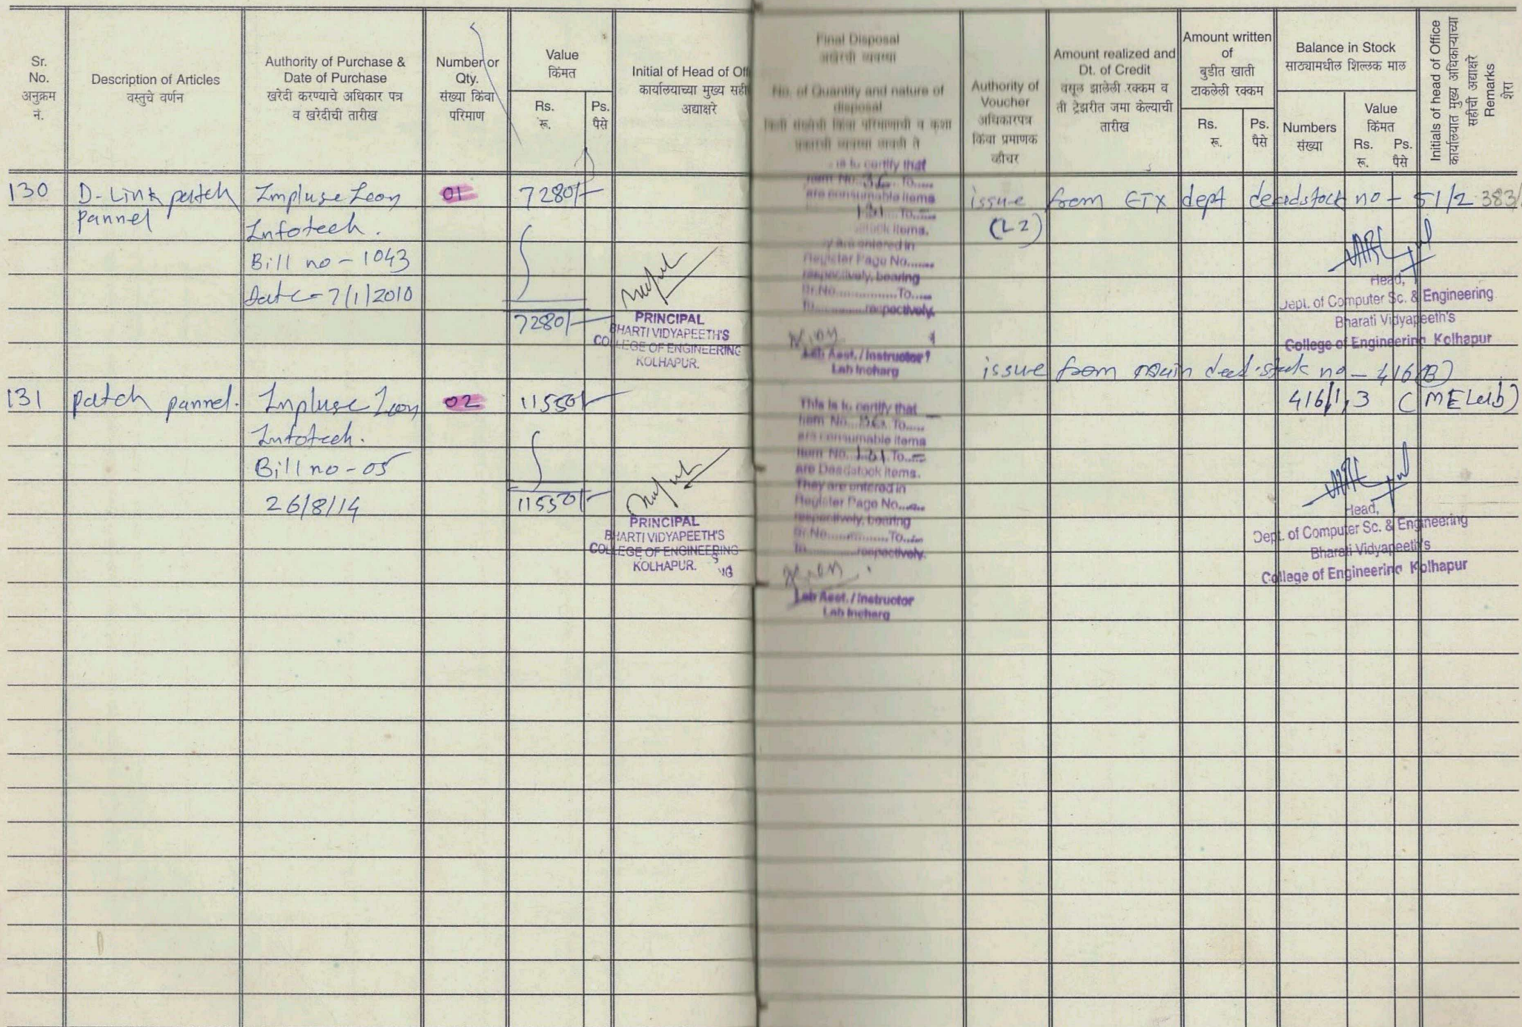 Sr.
No.
अनुक्रम
नं.
Description of Articles
वस्तुचे वर्णन
Authority of Purchase &
Date of Purchase
खरेदी करण्याचे अधिकार पत्र
व खरेदीची तारीख
Number or
Qty.
संख्या किंवा
परिमाण
Value
किंमत
Rs.
रू.
Ps.
पैसे
Initial of Head of Off
कार्यालयाच्या मुख्य सही
अद्याक्षरे
Final Disposal
No. of Quantity and nature of
disposal
Authority of
Voucher
अधिकारपत्र
किंवा प्रमाणक
व्हौचर
Amount realized and
Dt. of Credit
वसूल झालेली रक्कम व
ती ट्रेझरीत जमा केल्याची
तारीख
Amount written
of
बुडीत खाती
टाकलेली रक्कम
Rs.
रू.
Ps.
पैसे
Balance in Stock
साठ्यामधील शिल्लक माल
Numbers
संख्या
Value
किंमत
Rs.
रू.
Ps.
पैसे
Initials of head of Office
कार्यालयात मुख्य अधिकाऱ्याच्या
सहीची अद्याक्षरे
Remarks
शेरा
130 D-Link patch Impluse Icon 01 7280/-
pannel Infotech.
Bill no - 1043
Date - 7/1/2010
7280/-
PRINCIPAL
BHARTI VIDYAPEETH'S
COLLEGE OF ENGINEERING
KOLHAPUR.
is to certify that
Item No. 36 To.....
are consumable items
131 To
stock items.
y are entered in
Register Page No.......
respectively, bearing
Sr.No...............To.....
to...............respectively.
Lab Asst. / Instructor
Lab Incharg
issue from ETX dept deadstock no - 51/2 383/
(L2)
Head,
Dept. of Computer Sc. & Engineering
Bharati Vidyapeeth's
College of Engineering Kolhapur
issue from main dead-stock no - 416(B)
131 patch pannel. Impluse Icon 02 11550/- 416/1,3 (MELab)
Infotech.
Bill no - 05
26/8/14
11550/-
PRINCIPAL
BHARTI VIDYAPEETH'S
COLLEGE OF ENGINEERING
KOLHAPUR.
This is to certify that
Item No. 36 To.....
are consumable items
Item No. 131 To
are Deadstock items.
They are entered in
Register Page No.......
respectively, bearing
Sr.No...............To.....
to...............respectively.
Lab Asst. / Instructor
Lab Incharg
Head,
Dept. of Computer Sc. & Engineering
Bharati Vidyapeeth's
College of Engineering Kolhapur